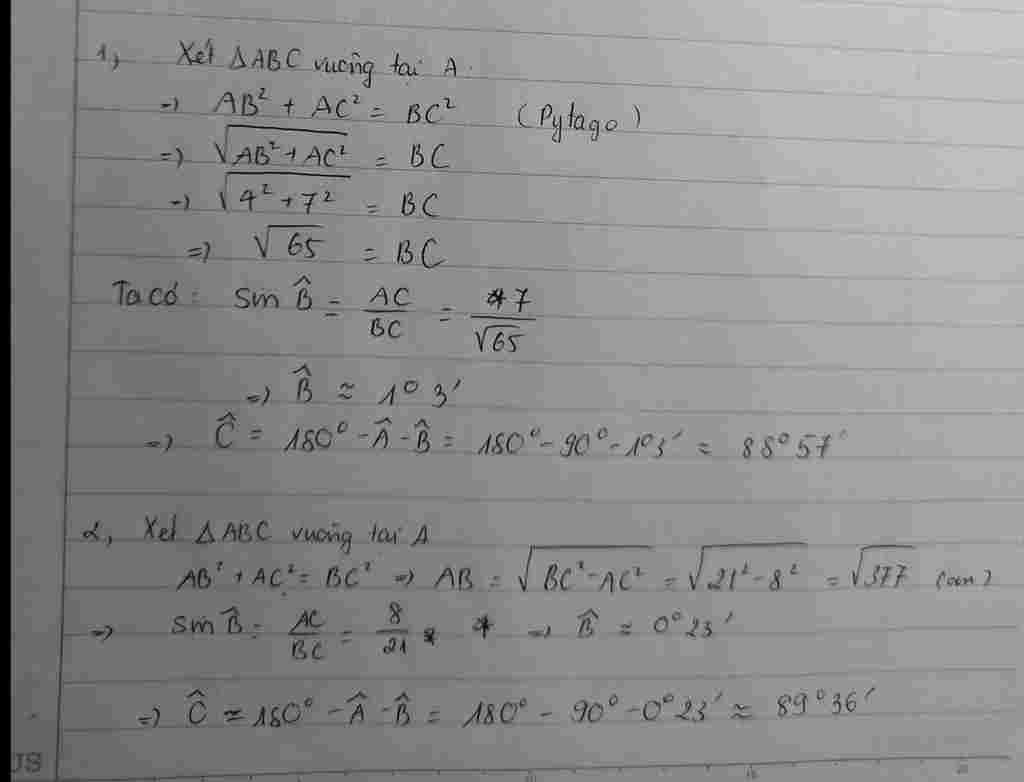 1, Xét ΔABC vuông tại A.
=> AB² + AC² = BC² (Pytago)
=> √(AB² + AC²) = BC
=> √(4² + 7²) = BC
=> √65 = BC
Ta có: Sin B̂ = AC/BC = 7/√65
=> B̂ ≈ 1° 3'
=> Ĉ = 180° - Â - B̂ = 180° - 90° - 1°3' ≈ 88°57'
2, Xét ΔABC vuông tại A
AB² + AC² = BC² => AB = √(BC² - AC²) = √(21² - 8²) = √377 (cm)
=> Sin B̂ = AC/BC = 8/21 => B̂ ≈ 0°23'
=> Ĉ ≈ 180° - Â - B̂ = 180° - 90° - 0°23' ≈ 89°36'